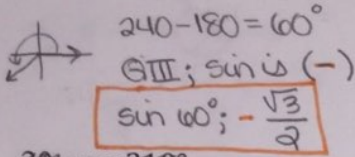 240-180=60°
QIII; sin is (-)
sin 60°; - √3/2